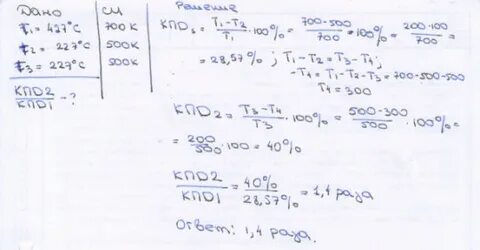 Дано
t₁ = 427°C
t₂ = 227°C
t₃ = 227°C
КПД2/КПД1 - ?
СИ
700К
500К
500К
Решение
КПД₁ = (T₁-T₂)/T₁ · 100% = (700-500)/700 · 100% = (200·100)/700 =
= 28,57% ; T₁-T₂ = T₃-T₄;
-T₄ = T₁-T₂-T₃ = 700-500-500
T₄ = 300
КПД₂ = (T₃-T₄)/T₃ · 100% = (500-300)/500 · 100% =
= 200/500 · 100 = 40%
КПД2/КПД1 = 40%/28,57% = 1,4 раза
Ответ: 1,4 раза.